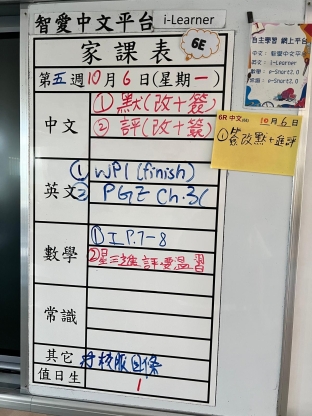 智愛中文平台 i-Learner
家課表
6E
第五週10月6日(星期一)
中文
①默(改+簽)
②評(改+簽)
英文
①WP1 (finish)
②PGE Ch.3(
數學
①工P.7-8
②星三進評要溫習
常識
其它
回條
值日生
1
自主學習 網上平台
中文:智愛中文平台
英文:i-Learner
數學:e-Smart2.0
常識:e-Smart2.0
6R 中文 10月6日
①簽改默+進評